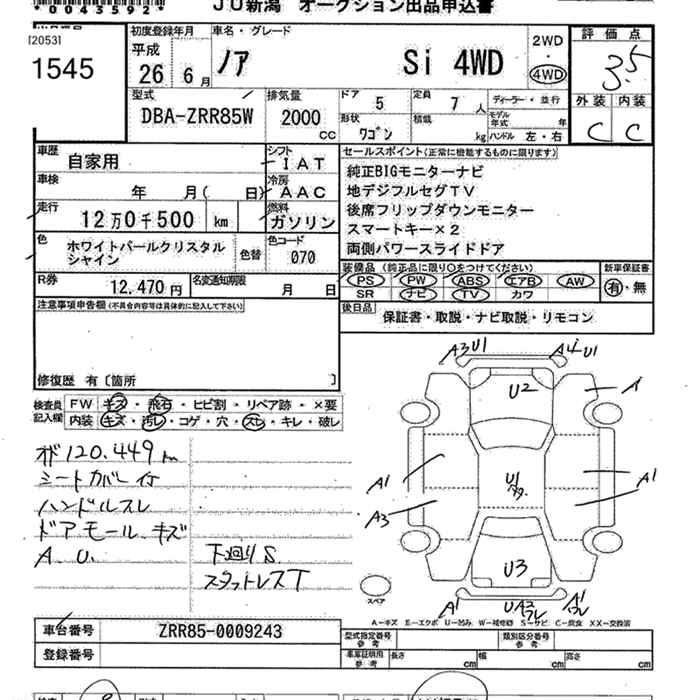 *0043592*
JU新潟 オークション出品申込書
[2053]
1545
初度登録年月
平成
26年 6月
車名・グレード
ノア Si 4WD
2WD
・
4WD
評価点
3.5
外装 内装
C C
型式
DBA-ZRR85W
排気量
2000
cc
ドア 5
定員 7人
形状 ワゴン
積載 kg
ディーラー・並行
モデル年式 年
ハンドル 左・右
車歴 自家用
シフト IAT
車検 年 月( 日)
冷房 AAC
走行 12万0千500 km
燃料 ガソリン
色 ホワイトパールクリスタル
シャイン
色替
色コード 070
R券 12,470円
名変通知期限 月 日
セールスポイント(正常に機能するものに限ります)
純正BIGモニターナビ
地デジフルセグTV
後席フリップダウンモニター
スマートキー×2
両側パワースライドドア
装備品(純正品に限り○をつけてください)
PS PW ABS エアB AW
SR ナビ TV カワ
新車保証書
有・無
後日品 保証書・取説・ナビ取説・リモコン
注意事項申告欄(不具合内容等は具体的に記入して下さい)
修復歴 有〔箇所 〕
検査員
記入欄
FW キズ・飛石・ヒビ割・リペア跡・×要
内装 キズ・汚レ・コゲ・穴・スレ・キレ・破レ
120.449
シートカバー付
ハンドルスレ
ドアモール キズ
A.U.
下廻りS
スタットレスT
A3U1
A4U1
U2
A1
A3
U1
A1
U3
A1
UA3
フレ
A1
フレ
スペア
A-キズ E-エクボ U-凹み W-補修跡 S-サビ C-腐食 XX-交換済
車台番号 ZRR85-0009243
登録番号
型式指定番号
参考
類別区分番号
参考
車庫証明用
参考
長さ cm
幅 cm
高さ cm